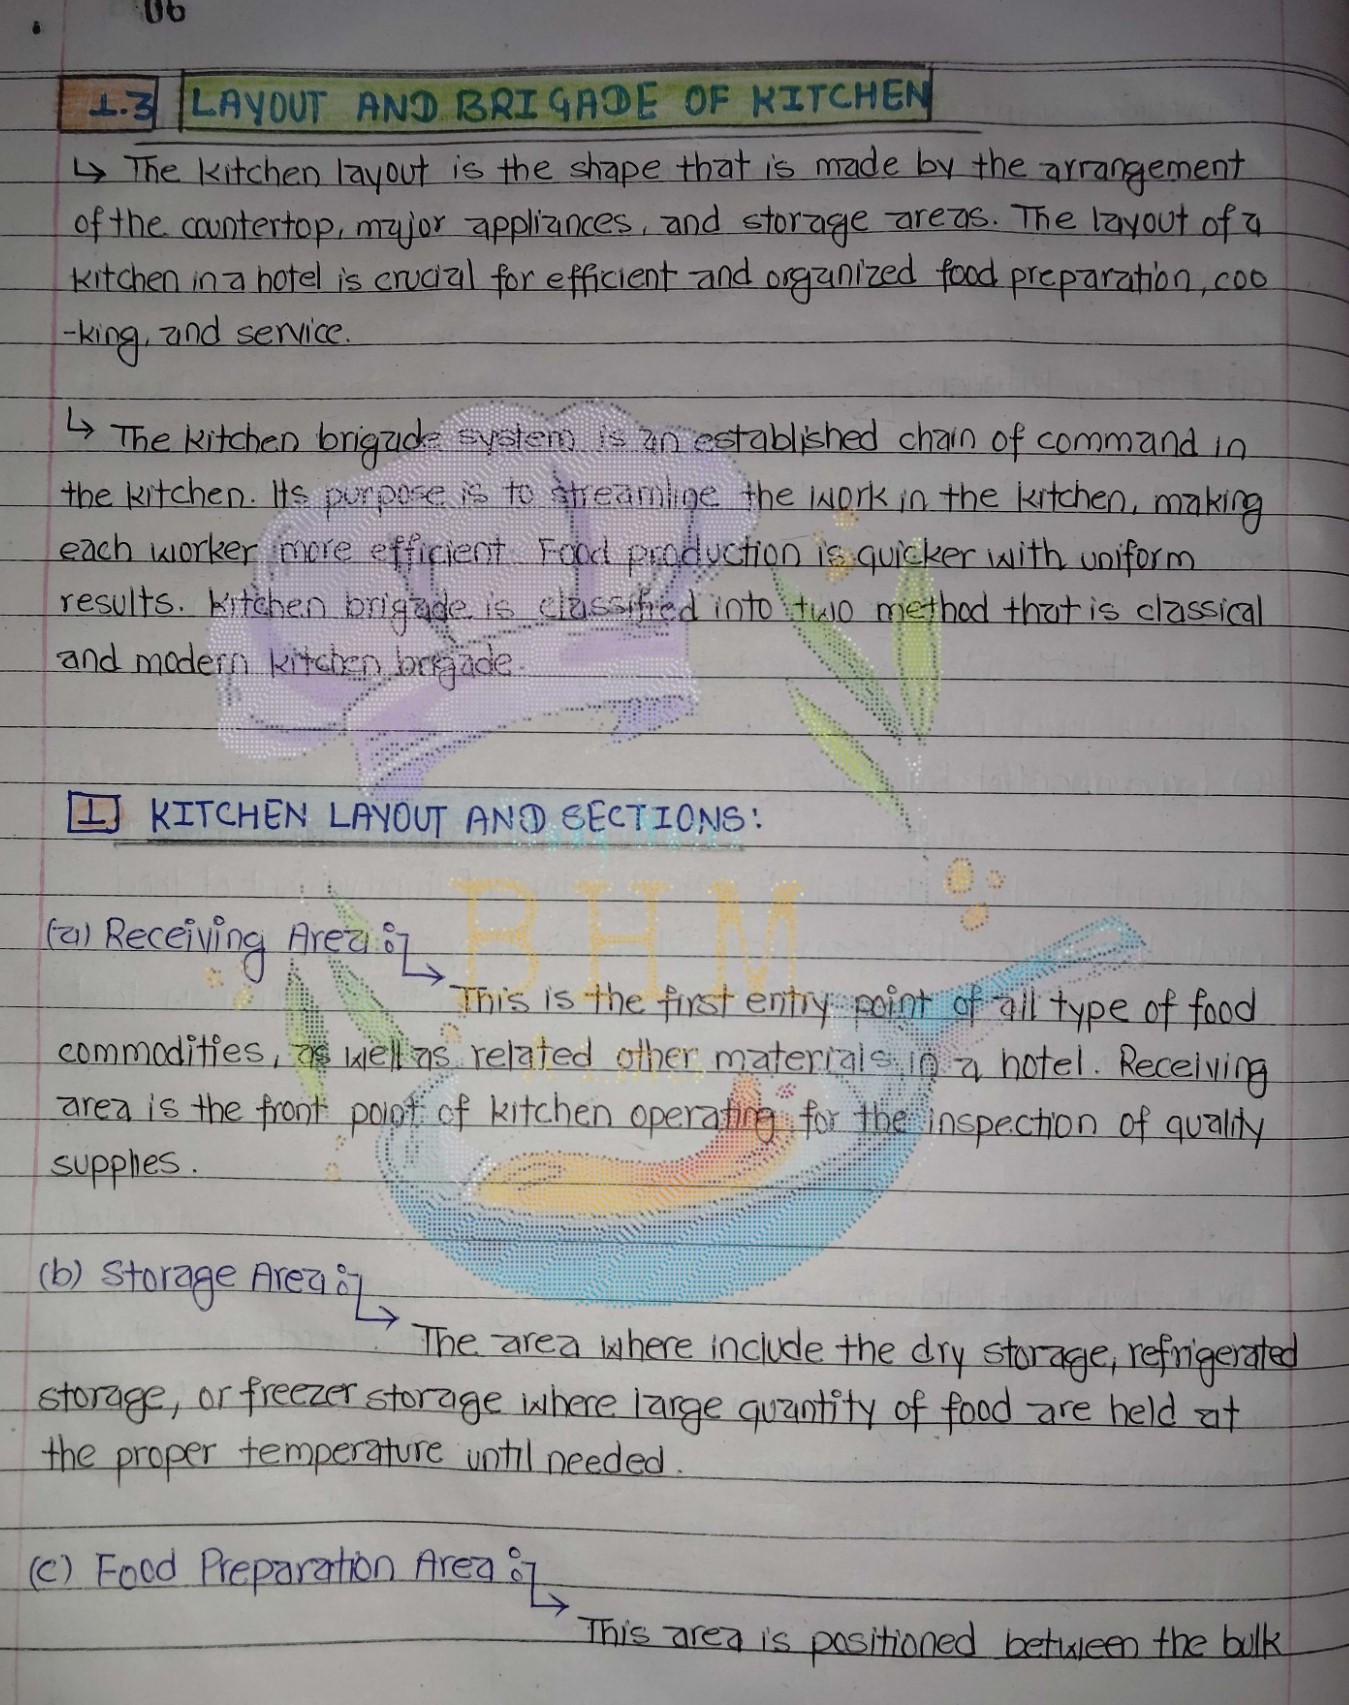 06
1.3 LAYOUT AND BRIGADE OF KITCHEN
↳ The kitchen layout is the shape that is made by the arrangement
of the countertop, major appliances, and storage areas. The layout of a
kitchen in a hotel is crucial for efficient and organized food preparation, coo
-king, and service.
↳ The kitchen brigade system is an established chain of command in
the kitchen. Its purpose is to streamline the work in the kitchen, making
each worker more efficient. Food production is quicker with uniform
results. Kitchen brigade is classified into two method that is classical
and modern kitchen brigade.
1 KITCHEN LAYOUT AND SECTIONS:
BHM
(a) Receiving Area :
↳ This is the first entry point of all type of food
commodities, as well as related other materials in a hotel. Receiving
area is the front point of kitchen operating for the inspection of quality
supplies.
(b) Storage Area :
↳ The area where include the dry storage, refrigerated
storage, or freezer storage where large quantity of food are held at
the proper temperature until needed.
(c) Food Preparation Area :
↳ This area is positioned between the bulk